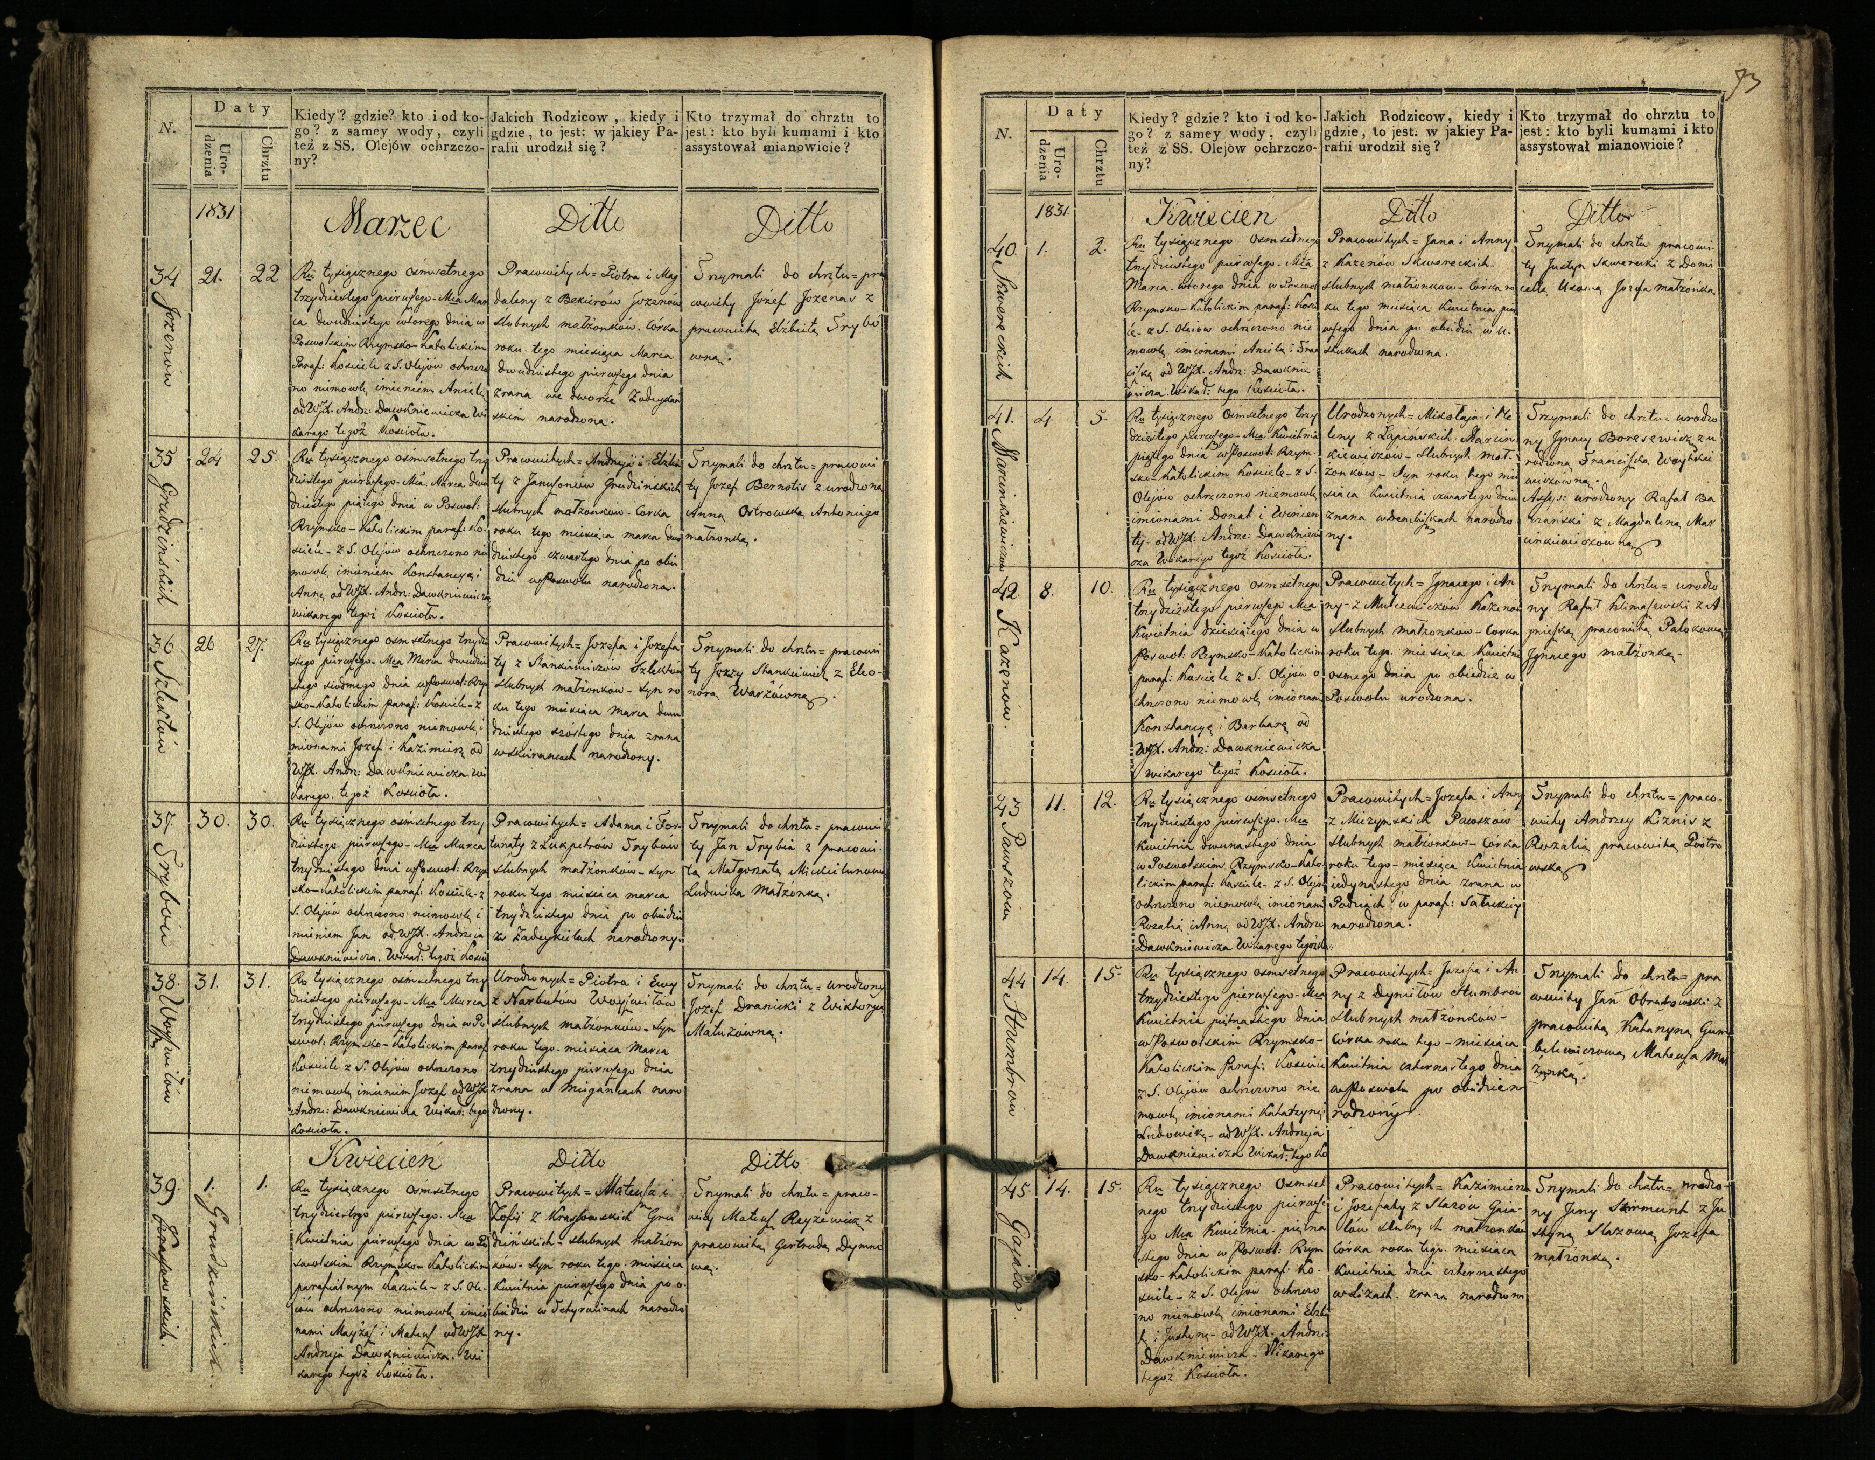 N.
Daty
Uro-
dzenia
Chrztu
Kiedy? gdzie? kto i od ko-
go? z samey wody, czyli
też z SS. Olejów ochrzczo-
ny?
Jakich Rodzicow, kiedy i
gdzie, to jest: w jakiey Pa-
rafii urodził się?
Kto trzymał do chrztu to
jest: kto byli kumami i kto
assystował mianowicie?
1831
Marzec
Ditto
Ditto
34
Jozenow
21.
22
Ru tysiącznego osmsetnego
trzydziestego pierwszego Mca Mar
ca dwudziestego wtorego dnia w
Poswolskim Rzymsko Katolickim
Paraf: Kosciele z S. Olejów ochrzczo
no niemowle imieniem Anielę
od WJX. Andr: Dawkniewicza Wi
karego tegoż Kosciola.
Pracowitych = Piotra i Mag
daleny z Bekierów Jozenow
slubnych małżonków. Córka
roku tego miesiąca Marca
dwudziestego pierwszego dnia
zrana we dworze
narodzona.
Trzymali do chrztu = pra
cowity Józef Jozenas z
pracowitą Elżbietą Trybó
wną.
35
Grudzińskich
24
25.
Ru tysiącznego osmsetnego trzy
dziestego pierwszego Mca Marca dwu
dziestego piątego dnia w Poswol:
Rzymsko-Katolickim paraf: Ko-
sciele z S. Olejow ochrzczono nie
mowle imieniem Konstancyą i
Anną od WJX. Andr: Dawkniewicza
Wikarego tegoż Kosciola.
Pracowitych = Andrzeja i Elżbie
ty z Janusoniow Grudzinskich
slubnych małżonkow. Corka
roku tego miesiąca marca dwu
dziestego czwartego dnia po obie
dzie w Poswolu narodzona.
Trzymali do chrztu = pracowi
ty Jozef Bernotis z urodzoną
Anną Ostrowską Antoniego
małżonką.
36
Szlektów
26
27.
Ru tysiącznego osmsetnego trzydzie
stego pierwszego Mca Marca dwudzie
stego siodmego dnia w Poswol: Rzym
sko-Katolickim paraf: Kosciele z
S. Olejów ochrzczono niemowle i
mionami Jozef i Kazimierz od
WJX. Andr: Dawkniewicza Wi
karego tegoż Kosciola.
Pracowitych = Jozefa i Jozefa
ty z Stankiewiczów Szlektów
slubnych małżonkow syn ro
ku tego miesiąca marca dwu
dziestego szostego dnia zrana
narodzony.
Trzymali do chrztu = pracowi
ty Jerzy Stankiewicz z Eleo-
norą Warżówną.
37.
Trybow
30.
30.
Ru tysiącznego osmsetnego trzy
dziestego pierwszego Mca Marca
trzydziestego dnia w Poswol: Rzym
sko-Katolickim paraf: Kosciele z
S. Olejów ochrzczono niemowle i
mieniem Jan od WJX. Andrzeja
Dawkniewicza. Wikar: tegoż Kosci
Pracowitych = Adama i For-
tunaty z Trybow
slubnych małżonków syn
roku tego miesiąca marca
trzydziestego dnia po obiedzie
w Zadeykielach narodzony.
Trzymali do chrztu = pracowi
ty Jan Trybia z pracowi
tą Małgorzatą
Ludwika Małżonką.
38.
Woyswiłow
31.
31.
Ru tysiącznego osmsetnego trzy
dziestego pierwszego Mca Marca
trzydziestego pierwszego dnia w Po
swol: Rzymsko-Katolickim paraf
Kosciele z S. Olejów ochrzczono
niemowle imieniem Jozef od WJX
Andrz: Dawkniewicza Wikar: tego
Kosciola.
Urodzonych = Piotra i Ewy
z Narbutów Woyswiłow
slubnych małżonków syn
roku tego miesiąca Marca
trzydziestego pierwszego dnia
zrana w Migańcach naro
dzony.
Trzymali do chrztu = urodzony
Jozef Dranicki z Wiktoryą
Małużowną.
Kwiecień
Ditto
Ditto
39
Krasowskich
Grudzińskich
1.
1.
Ru tysiącznego osmsetnego
trzydziestego pierwszego. Mca
Kwietnia pierwszego dnia w Po
swolskim Rzymsko Katolickim
parafialnym Kosciele z S. Ole
jów ochrzczono niemowle imio
nami i Mateusz od WJX
Andrzeja Dawkniewicza. Wi
karego tegoż Kosciola.
Pracowitych = Mateusza i
Zofii z Krasowskich Gru
dzińskich slubnych małżon
kow syn roku tego miesiąca
Kwietnia pierwszego dnia po o
biedzie w narodzo
ny.
Trzymali do chrztu = praco-
wity Mateusz Rayżewicz z
pracowitą Gertrudą
wą.
73
N.
Daty
Uro-
dzenia
Chrztu
Kiedy? gdzie? kto i od ko-
go? z samey wody, czyli
też z SS. Olejów ochrzczo-
ny?
Jakich Rodzicow, kiedy i
gdzie, to jest: w jakiey Pa-
rafii urodził się?
Kto trzymał do chrztu to
jest: kto byli kumami i kto
assystował mianowicie?
1831
Kwiecien
Ditto
Ditto
40.
Skwereckich
1.
2.
Ru tysiącznego osmsetnego
trzydziestego pierwszego Mca
Marca wtorego dnia w Poswol
Rzymsko-Katolickim paraf: Kosci
z S. Olejów ochrzczono nie
mowle imionami Anielę i Fran
ciszkę od WJX. Andr: Dawknie
wicza Wikar: tego Kosciola.
Pracowitych = Jana i Anny
z Kazenów Skwereckich
slubnych małżonkow. Corka ro
ku tego miesiąca Kwietnia pier
wszego dnia po obiedzie w
narodzona.
Trzymali do chrztu pracowi-
ty Justyn Skwerecki z Domi
cellą Jozefa małżonką
41.
Marcinkiewiczow
4
5.
Ru tysiącznego Osmsetnego trzy
dziestego pierwszego Mca Kwietnia
piątego dnia w Poswol: Rzym-
sko-Katolickim Kosciele z S.
Olejów ochrzczono niemowle
imionami Donat i Wincen
ty od WJX. Andrz: Dawkniewi
cza Wikarego tegoż Kosciola.
Urodzonych = Mikołaja i He
leny z Łapinskich Marcin
kiewiczow slubnych mał
żonkow Syn roku tego mie
siąca Kwietnia czwartego dnia
zrana w narodzo
ny.
Trzymali do chrztu urodzo
ny Ignacy Boresewicz z u
rodzoną Franciszką

Assys: urodzony Rafał Ba
ranski z Magdaleną Mar
cinkiewiczowną
42
Kazenow
8.
10.
Ru tysiącznego osmsetnego
trzydziestego pierwszego Mca
Kwietnia dziesiątego dnia w
Poswol: Rzymsko-Katolickim
paraf: Kosciele z S. Olejów o
chrzczono niemowle imionami
Konstancyę i Barbarę od
WJX. Andrz: Dawkniewicza
Wikarego tegoż Kosciola.
Pracowitych = Ignacego i An
ny z Kazenow
slubnych małżonkow Corka
roku tego miesiąca Kwietnia
osmego dnia po obiedzie w
Poswolu urodzona.
Trzymali do chrztu = urodzo
ny Rafał Klimaszewski z A
gnieszką pracowitą
Ignacego małżonką
43
Pawszow
11.
12.
Ru tysiącznego osmsetnego
trzydziestego pierwszego. Mca
Kwietnia dwunastego dnia
w Poswolskim Rzymsko-Kato
lickim paraf: Kosciele z S. Olejo
ochrzczono niemowle imionami
Rozalią i Anną od WJX. Andrz:
Dawkniewicza Wikarego tegoż K
Pracowitych = Jozefa i Anny
z Pawszow
slubnych małżonkow Córka
roku tego miesiąca Kwietnia
jedynastego dnia zrana w
w paraf:
narodzona.
Trzymali do chrztu = praco-
wity Andrzey Kiznis z
Rozalią pracowitą Piotro
wską
44
Stumbrow
14.
15.
Ru tysiącznego osmsetnego
trzydziestego pierwszego Mca
Kwietnia piętnastego dnia
w Poswolskim Rzymsko-
Katolickim Paraf: Kosciele
z S. Olejów ochrzczono nie
mowle imionami Katarzynę i
Ludowikę od WJX. Andrzeja
Dawkniewicza Wikar: tego Ko
Pracowitych = Jozefa i An
ny z Stumbrow
slubnych małżonkow
Córka roku tego miesiąca
Kwietnia czternastego dnia
w Poswolu po obiedzie na
rodzony
Trzymali do chrztu = pra
cowity Jan Obrastowski z
pracowitą Katarzyną Gum
belewiczową Mateusza Mał
żonką.
45
Gajałow.
14.
15.
Ru tysiącznego osmset
nego trzydziestego pierwsze
go Mca Kwietnia piętna
stego dnia w Poswol: Rzym
sko-Katolickim paraf: Ko-
sciele z S. Olejów ochrzczo
no niemowle imionami Elżbie
tę i Justynę od WJX. Andrz:
Dawkniewicza Wikarego
tegoż Kosciola.
Pracowitych = Kazimierza
i Jozefaty z Gaia-
łow slubnych małżonkow
Corka roku tego miesiąca
Kwietnia dnia czternastego
zrana narodzona
Trzymali do chrztu = urodzo-
ny Jerzy Skirmunt z Ju
styną Jozefa
małżonką.